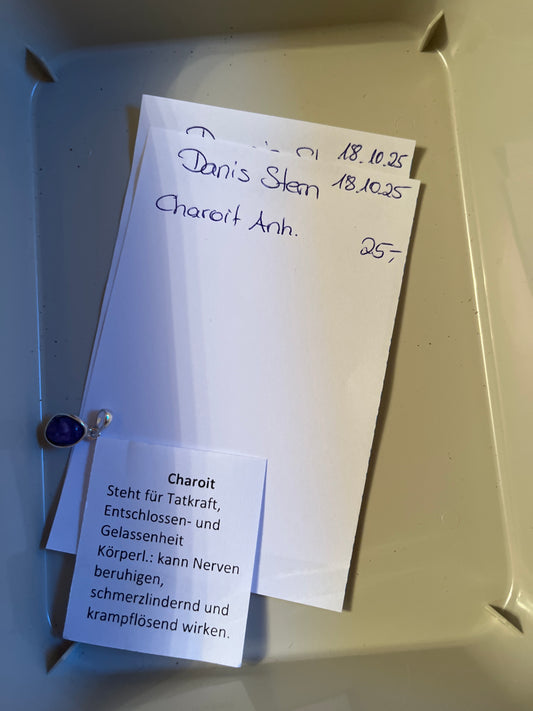 18.10.25
Danis Stern 18.10.25
Charoit Anh.
25,-
Charoit
Steht für Tatkraft,
Entschlossen- und
Gelassenheit
Körperl.: kann Nerven
beruhigen,
schmerzlindernd und
krampflösend wirken.